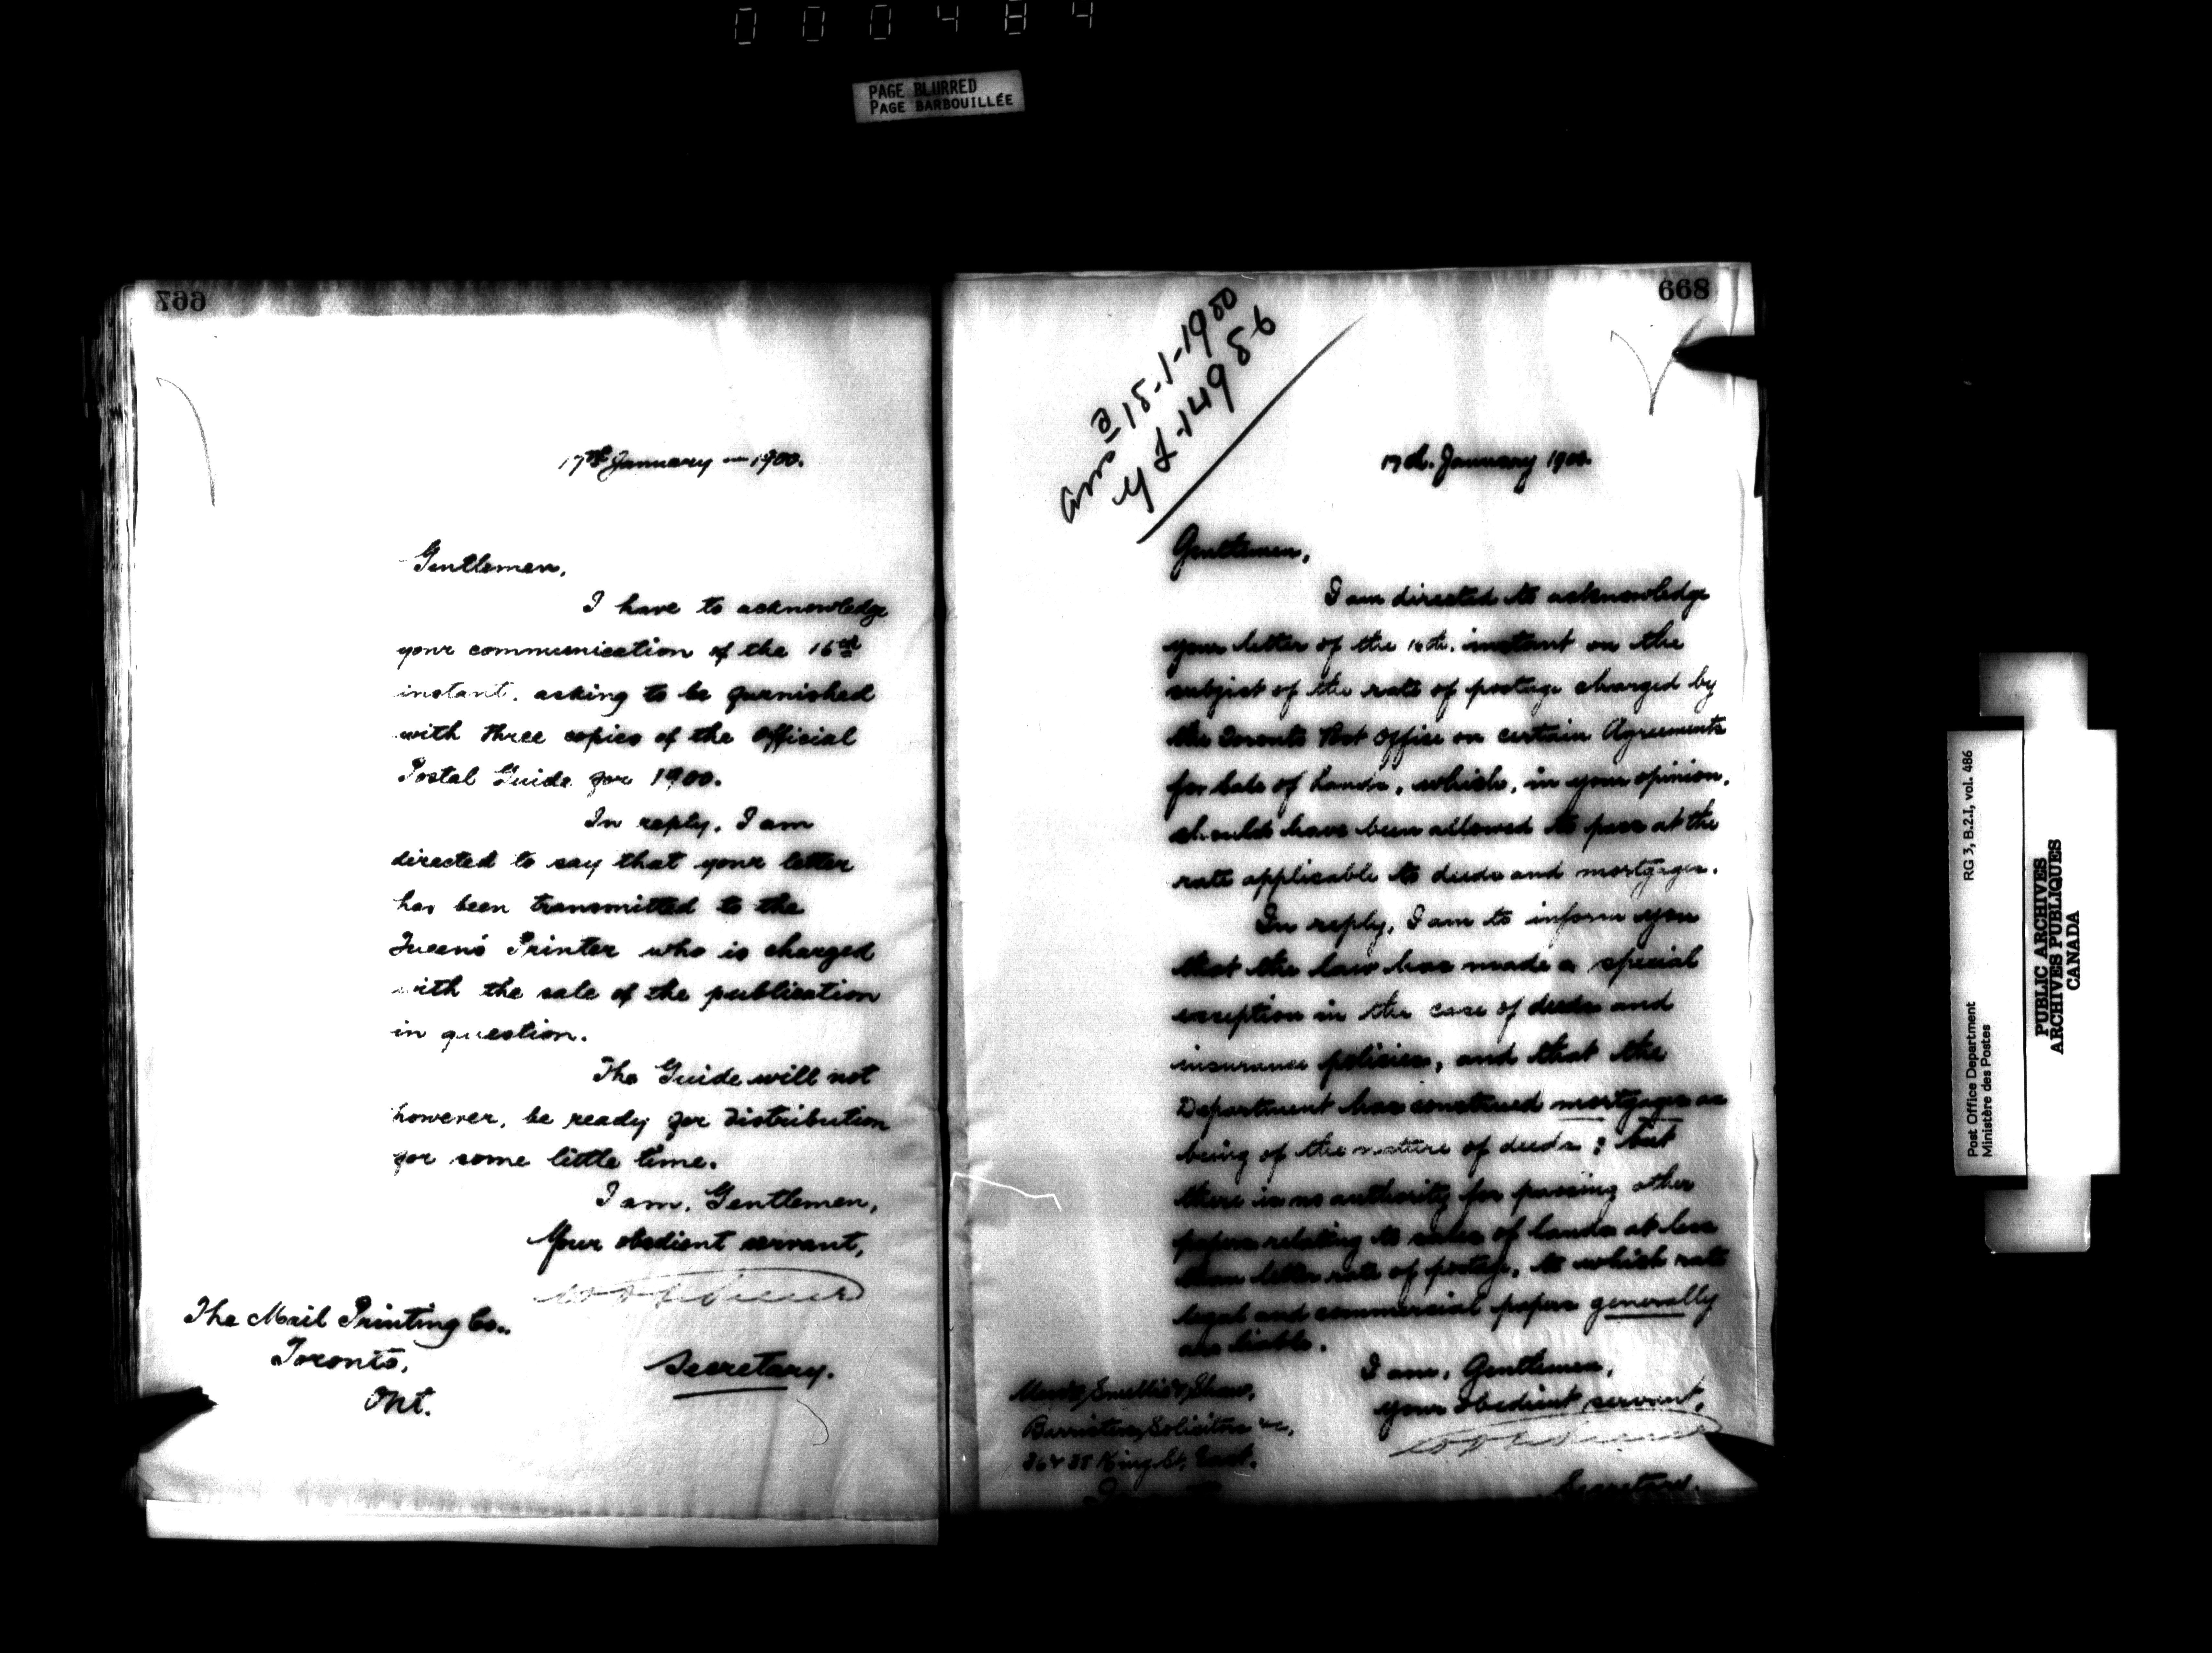 000484
PAGE BLURRED
PAGE BARBOUILLÉE
667
17th January 1900.
Gentlemen,
I have to acknowledge
your communication of the 16th
instant, asking to be furnished
with three copies of the Official
Postal Guide for 1900.
In reply, I am
directed to say that your letter
has been transmitted to the
Queen's Printer who is charged
with the sale of the publication
in question.
The Guide will not
however, be ready for distribution
for some little time.
I am, Gentlemen,
Your obedient servant,
Secretary.
The Mail Printing Co.,
Toronto,
Ont.
668
15-1-1900
17th. January 1900.
Gentlemen,
I am directed to acknowledge
your letter of the instant on the
subject of the rate of postage charged by
the Toronto Post Office on certain Agreements
for Sale of Lands, which, in your opinion,
should have been allowed to pass at the
rate applicable to deeds and mortgages.
In reply, I am to inform you
that the law has made a special
exception in the case of deeds and
insurance policies, and that the
Department has construed mortgages as
being of the nature of deeds; but
there is no authority for passing other
papers relating to sales of lands at less
than letter rate of postage, to which rate
legal and commercial papers generally
are liable.
I am, Gentlemen,
your obedient servant,
Secretary.
Smellie & Shaw,
Barristers, Solicitors &c,
King St. East.
RG 3, B.2.I, vol. 486
Post Office Department
Ministère des Postes
PUBLIC ARCHIVES
ARCHIVES PUBLIQUES
CANADA